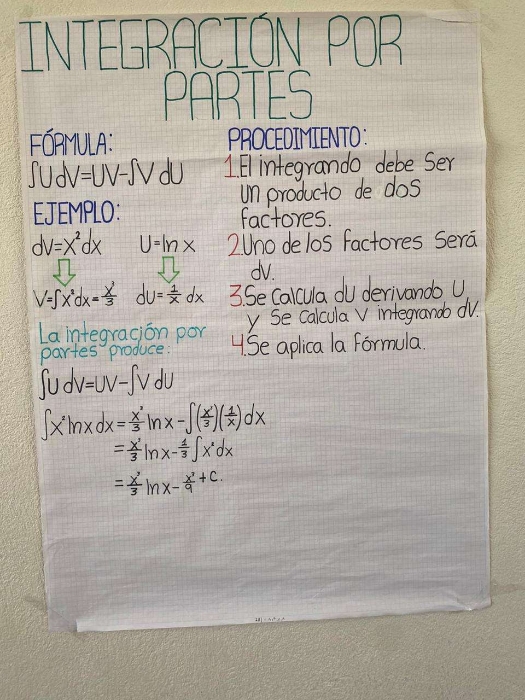 INTEGRACIÓN POR
PARTES
FÓRMULA:
∫U dV=UV-∫V dU
EJEMPLO:
dV=x²dx U=ln x
V=∫x²dx=x³/3 dU=1/x dx
La integración por
partes produce:
∫U dV=UV-∫V dU
∫x²lnx dx=x³/3 lnx-∫(x³/3)(1/x)dx
=x³/3 lnx-1/3∫x²dx
=x³/3 lnx-x³/9+C.
PROCEDIMIENTO:
1.El integrando debe Ser
Un producto de dos
factores.
2.Uno de los factores Será
dV.
3.Se Calcula dU derivando U
y Se calcula V integrando dV.
4.Se aplica la Fórmula.